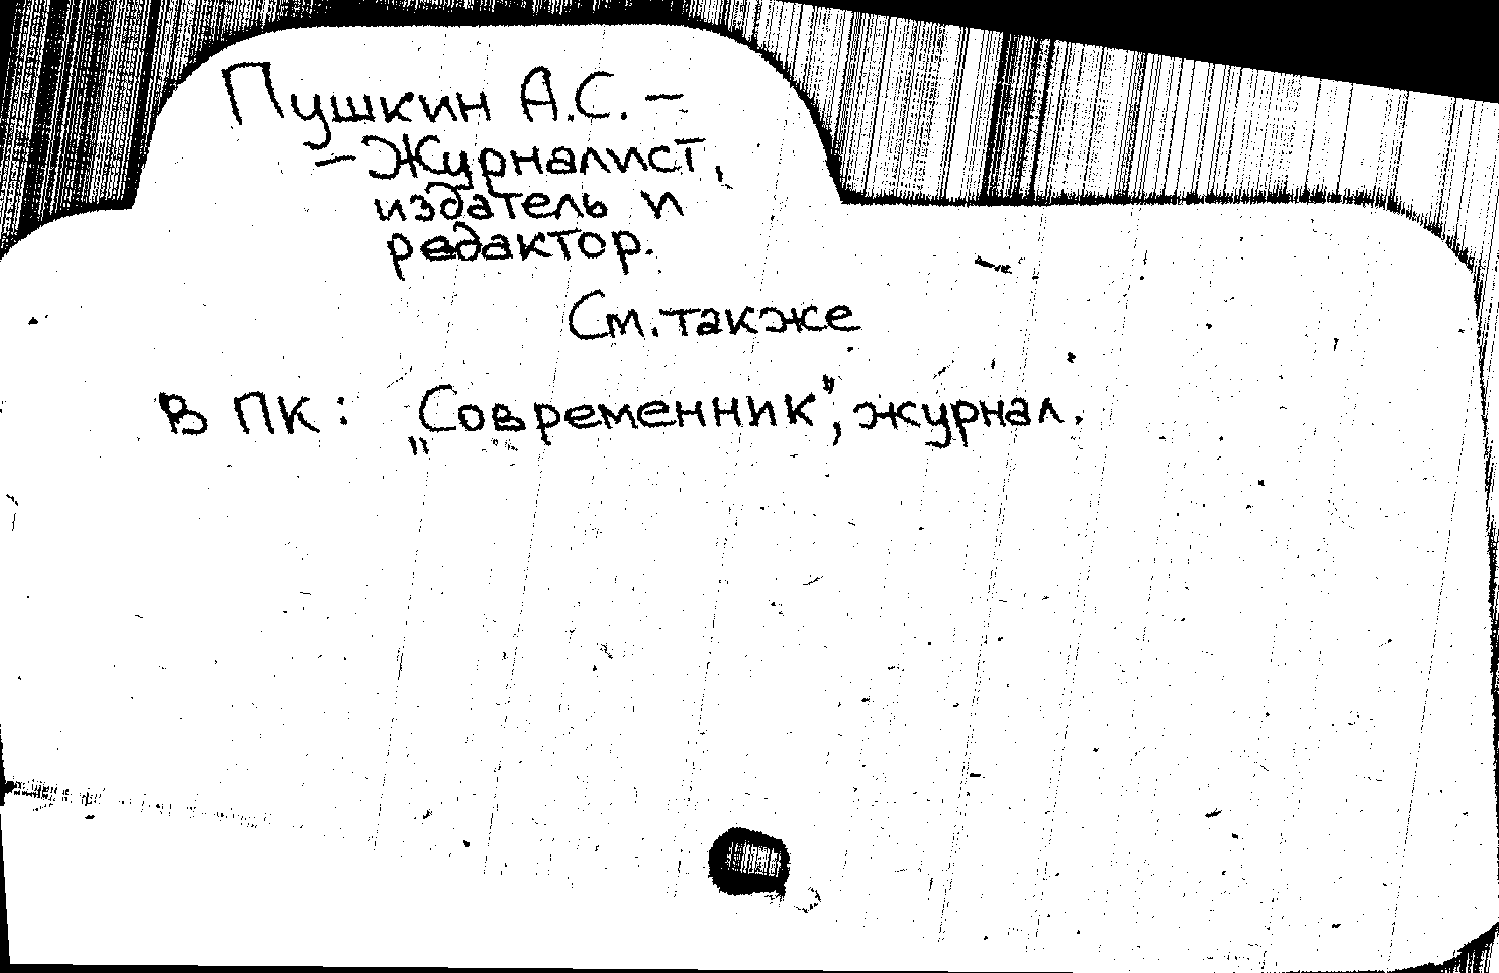 Пушкин А.С. –
– Журналист,
издатель и
редактор.
См. также
В ПК: „Современник", журнал.